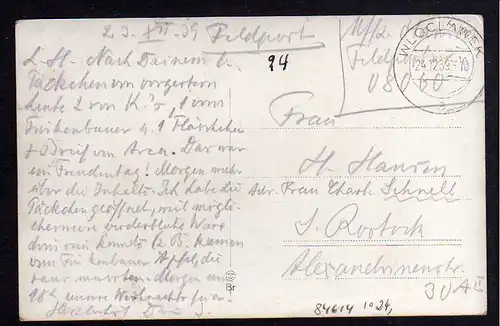 23. XII. 39 Feldpost
24
L. H. Nach Deinem l.
Päckchen von vorgestern
heute 2 von K's, 1 vom
Finkenbauer u. 1 Fläschchen
+ Brief von Area. Das war
ein Freudentag! Morgen mehr
über die Inhalte. Ich habe die
Päckchen geöffnet, weil mögli-
cherweise verderbliche Ware
drin sein konnte (z. B. kamen
vom Finkenbauer Äpfel, die
Morgen um
18h unsere Weihnachtsfeier.
Herzlichst Dein
Feldpost
08160
WLOCLAWEK
24.12.39.-10
a
Frau
H. Hansen
Adr. Frau Charl. Schnell
S. Rostock
Alexandrinenstr.
30 A II
Br
84614 10 24,